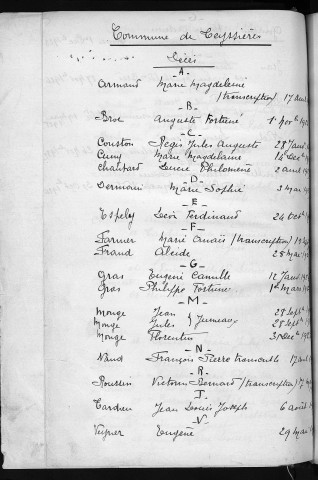 Commune de Teyssières
Décès
- A -
Armand Marie Magdeleine
(transcription) 17 avril
- B -
Broc Auguste Fortuné 1er nov
- C -
Couston Régis Jules Auguste 28 Janv
Cuny Marie Magdelaine 14 Dec
Chambard Lucie Philomène 2 avril
- D -
Dermain Marie Sophie 3 mai
- E -
Espeley Léon Ferdinand 24 oct
- F -
Farnier Marie Anaïs (transcription) 19
Fraud Alcide 28 mai
- G -
Gras Eugène Camille 12 Janv
Gras Philippe Fortuné 1er Mars
- M -
Monge Jean 28 Sept
Monge Jules } Jumeaux 28 Sept
Monge Florentin 31 Dec
- N -
Naud François Pierre 17 avril
- R -
Roussin Victorin Bernard (transcription) 17
- T -
Tardieu Jean Louis Joseph 6 août
- V -
Veyrier Eugène 29 Mai